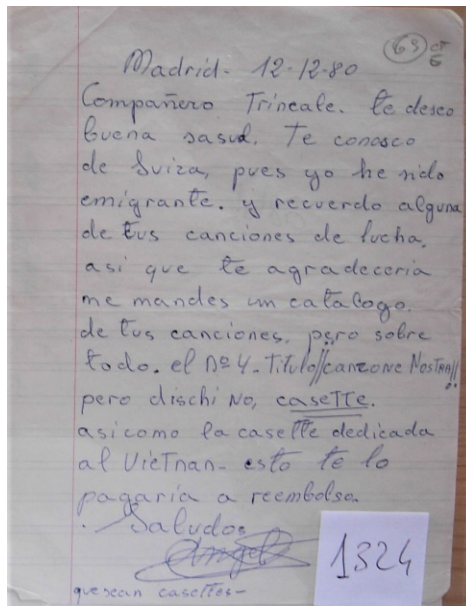 69 CT
6
Madrid - 12-12-80
Compañero Trincale. te deseo
buena sasud. Te conosco
de Suiza, pues yo he sido
emigrante. y recuerdo alguna
de tus canciones de lucha,
asi que te agradeceria
me mandes un catalogo.
de tus canciones, pero sobre
todo. el nº 4 - Titulo // canzone Nostra //
pero dischi No, caseTTe.
asi como la casette dedicada
al VieTnan - esto te lo
pagaria a reembolso.
. Saludos
Angel
1324
que sean casettes -